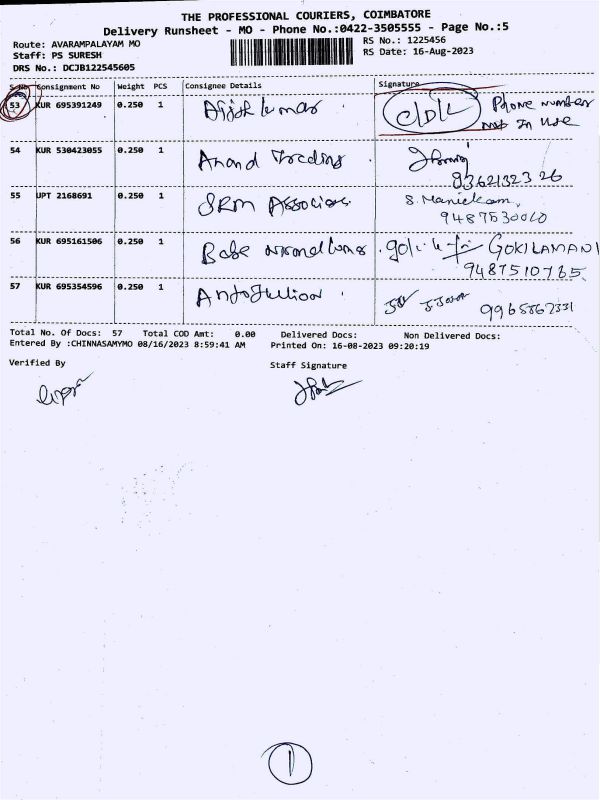 THE PROFESSIONAL COURIERS, COIMBATORE
Delivery Runsheet - MO - Phone No.:0422-3505555 - Page No.:5
Route: AVARAMPALAYAM MO
RS No.: 1225456
Staff: PS SURESH
RS Date: 16-Aug-2023
DRS No.: DCJB122545605
S.No. Consignment No Weight PCS Consignee Details Signature
53 KUR 695391249 0.250 1 Ajith kumar C/D/L Phone number
not In use
54 KUR 530423055 0.250 1 Anand Trading
9362132326
55 UPT 2168691 0.250 1 SRM Associas S. Manickam,
9487530060
56 KUR 695161506 0.250 1 GOKILAMANI
9487510765.
57 KUR 695354596 0.250 1 9965862331
Total No. Of Docs: 57 Total COD Amt: 0.00 Delivered Docs: Non Delivered Docs:
Entered By :CHINNASAMYMO 08/16/2023 8:59:41 AM Printed On: 16-08-2023 09:20:19
Verified By
Staff Signature
1